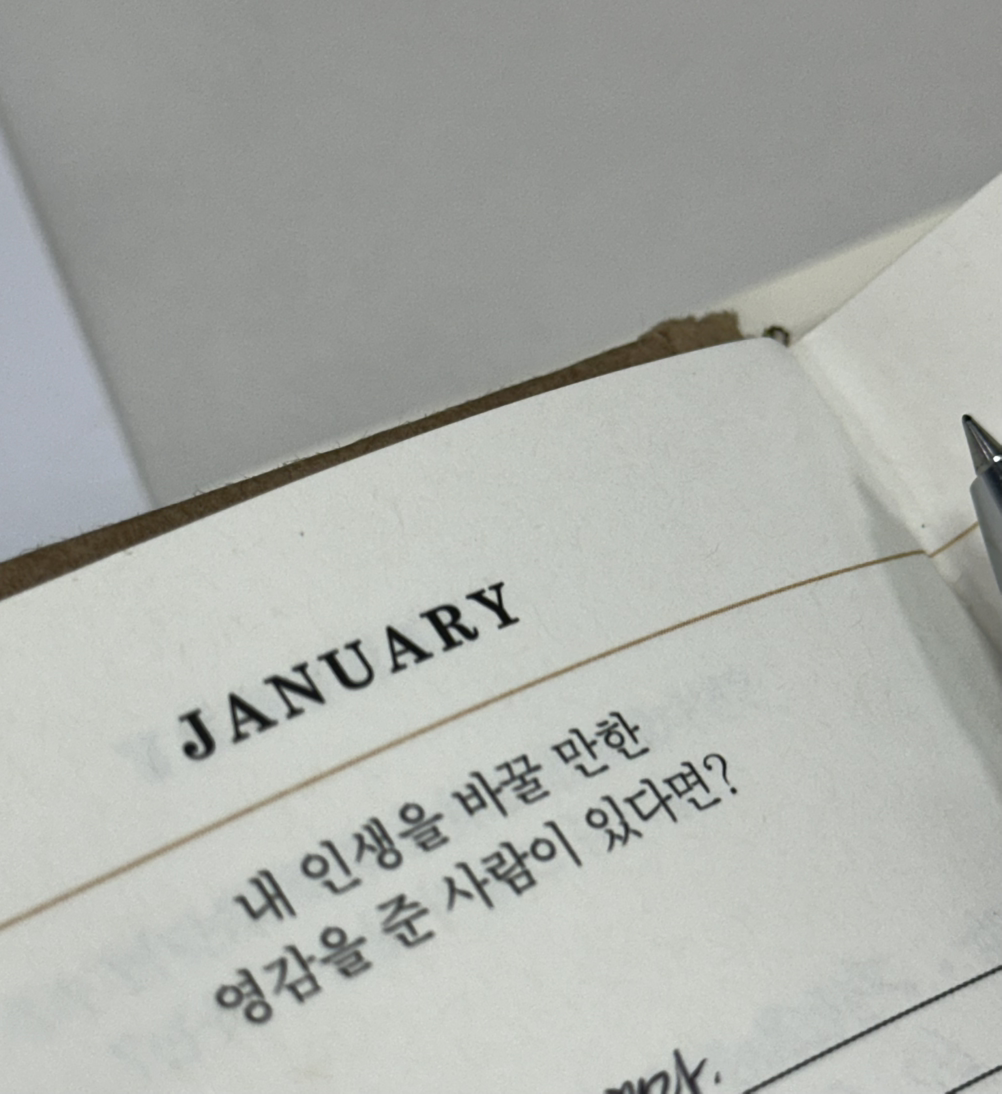 JANUARY
내 인생을 바꿀 만한
영감을 준 사람이 있다면?